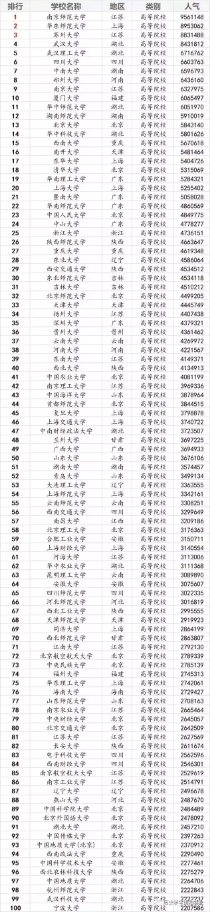 排行 学校名称 地区 类别 人气
1 南京师范大学 江苏 高等院校 9561148
2 华东师范大学 上海 高等院校 8953062
3 苏州大学 江苏 高等院校 8831488
4 武汉大学 湖北 高等院校 8431812
5 武汉理工大学 湖北 高等院校 6716762
6 四川大学 四川 高等院校 6603763
7 中南大学 湖南 高等院校 6596793
8 郑州大学 河南 高等院校 6430160
9 南京大学 江苏 高等院校 6327975
10 厦门大学 福建 高等院校 6065497
11 华中师范大学 湖北 高等院校 6051970
12 湖南师范大学 湖南 高等院校 5910019
13 北京大学 北京 高等院校 5843140
14 华中科技大学 湖北 高等院校 5801626
15 西南大学 重庆 高等院校 5670618
16 南开大学 天津 高等院校 5481464
17 东华大学 上海 高等院校 5404726
18 清华大学 北京 高等院校 5315069
19 华南理工大学 广东 高等院校 5284321
20 上海大学 上海 高等院校 5255402
21 暨南大学 广东 高等院校 5058028
22 华南师范大学 广东 高等院校 4860569
23 中国人民大学 北京 高等院校 4849775
24 中山大学 广东 高等院校 4778277
25 浙江大学 浙江 高等院校 4736151
26 陕西师范大学 陕西 高等院校 4663647
27 重庆大学 重庆 高等院校 4619348
28 东北大学 辽宁 高等院校 4586064
29 西安交通大学 陕西 高等院校 4534512
30 东北师范大学 吉林 高等院校 4534118
31 吉林大学 吉林 高等院校 4510212
32 北京师范大学 北京 高等院校 4499205
33 天津大学 天津 高等院校 4445749
34 扬州大学 江苏 高等院校 4407438
35 深圳大学 广东 高等院校 4379321
36 贵州大学 贵州 高等院校 4361462
37 云南大学 云南 高等院校 4269972
38 河南大学 河南 高等院校 4221567
39 东南大学 江苏 高等院校 4149371
40 西北大学 陕西 高等院校 4134913
41 中国农业大学 北京 高等院校 4081199
42 南京理工大学 江苏 高等院校 3969336
43 中国海洋大学 山东 高等院校 3878964
44 首都师范大学 北京 高等院校 3844515
45 复旦大学 上海 高等院校 3798878
46 上海交通大学 上海 高等院校 3740722
47 中南财经政法大学 湖北 高等院校 3723507
48 兰州大学 甘肃 高等院校 3697225
49 广西大学 广西 高等院校 3694933
50 山东大学 山东 高等院校 3676106
51 湖南大学 湖南 高等院校 3574457
52 青岛大学 山东 高等院校 3499134
53 大连理工大学 辽宁 高等院校 3363555
54 上海师范大学 上海 高等院校 3342161
55 云南师范大学 云南 高等院校 3308251
56 西南交通大学 四川 高等院校 3299649
57 南昌大学 江西 高等院校 3209186
58 北京理工大学 北京 高等院校 3176363
59 合肥工业大学 安徽 高等院校 3150711
60 上海财经大学 上海 高等院校 3140554
61 河海大学 江苏 高等院校 3113006
62 华中农业大学 湖北 高等院校 3111368
63 昆明理工大学 云南 高等院校 3089890
64 安徽大学 安徽 高等院校 3075607
65 四川师范大学 四川 高等院校 3022335
66 河北师范大学 河北 高等院校 3016819
67 西北工业大学 陕西 高等院校 2995555
68 天津师范大学 天津 高等院校 2919923
69 同济大学 上海 高等院校 2864199
70 西北师范大学 甘肃 高等院校 2863807
71 江南大学 江苏 高等院校 2792130
72 北京航空航天大学 北京 高等院校 2789339
73 中央民族大学 北京 高等院校 2785139
74 福州大学 福建 高等院校 2745313
75 华东理工大学 上海 高等院校 2742061
76 海南大学 海南 高等院校 2729427
77 山东师范大学 山东 高等院校 2708152
78 南京农业大学 江苏 高等院校 2665464
79 中央财经大学 北京 高等院校 2645057
80 北京交通大学 北京 高等院校 2642509
81 江苏大学 江苏 高等院校 2627569
82 长安大学 陕西 高等院校 2611674
83 电子科技大学 四川 高等院校 2562596
84 西南财经大学 四川 高等院校 2546301
85 南京航空航天大学 江苏 高等院校 2529619
86 浙江工业大学 浙江 高等院校 2514184
87 辽宁大学 辽宁 高等院校 2496678
88 燕山大学 河北 高等院校 2487670
89 中国科学院大学 北京 高等院校 2484489
90 北京外国语大学 北京 高等院校 2478092
91 湖北大学 湖北 高等院校 2457210
92 中国传媒大学 北京 高等院校 2397263
93 中国地质大学(北京) 北京 高等院校 2370912
94 西南政法大学 重庆 高等院校 2290490
95 中国科学技术大学 安徽 高等院校 2277461
96 西北农林科技大学 陕西 高等院校 2275279
97 中国地质大学 湖北 高等院校 2264706
98 杭州师范大学 浙江 高等院校 2222843
99 武汉科技大学 湖北 高等院校
100 宁波大学 浙江 高等院校 2207586